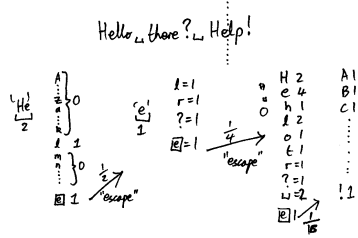 Hello␣there?␣Help!
'He'
2
A
⋮
z
a
⋮
k
0
l 1
m
n
⋮
0
[e] 1
1/2
"escape"
'e'
1
l=1
r=1
?=1
[e]=1
1/4
"escape"
"
"
0
H 2
e 4
h 1
l 2
o 1
t 1
r=1
?=1
␣=2
[e] 1
1/15
A 1
B 1
C 1
! 1